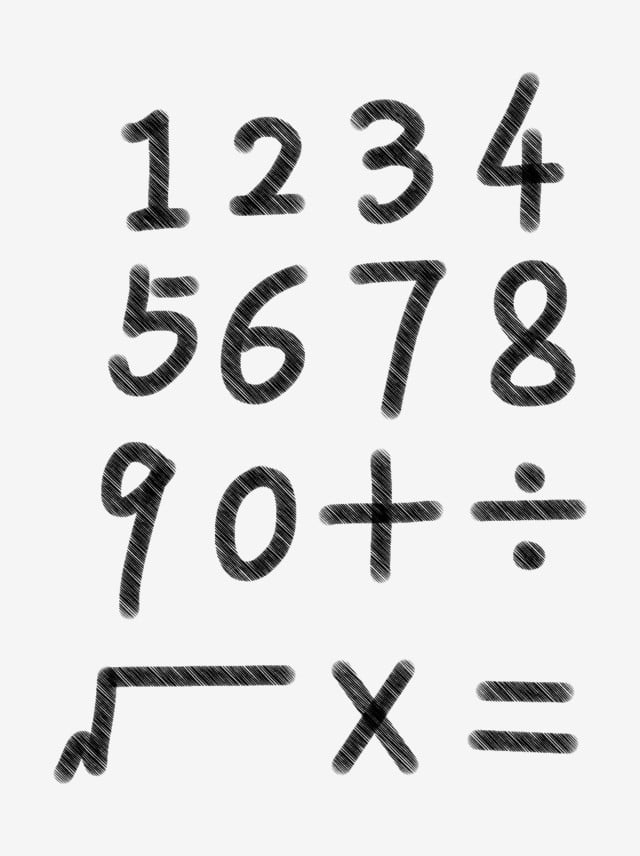 1 2 3 4
5 6 7 8
9 0 + ÷
√ x =